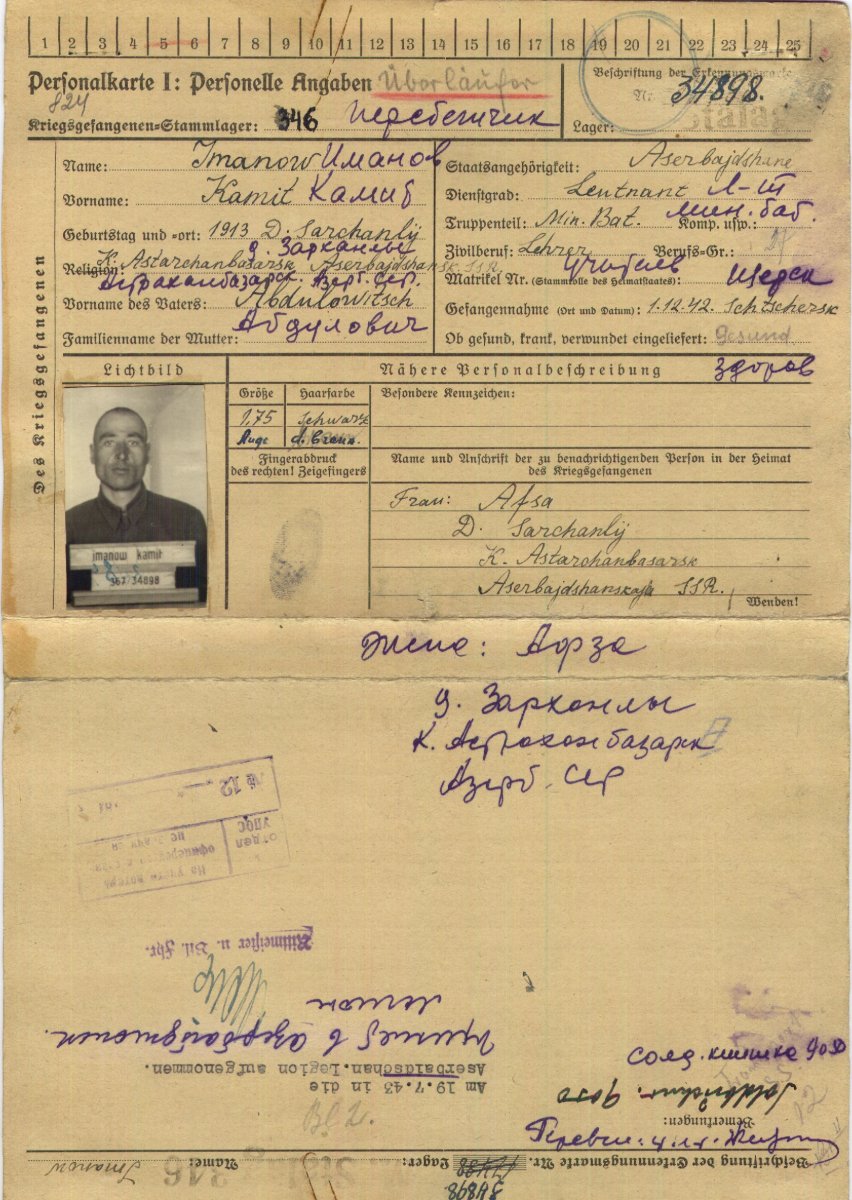 1 2 3 4 5 6 7 8 9 10 11 12 13 14 15 16 17 18 19 20 21 22 23 24 25
Personalkarte I: Personelle Angaben Überläufer
Beschriftung der Erkennungsmarke
824
Nr. 34898.
Kriegsgefangenen-Stammlager: 346 Перебежчик
Lager: Stalag
Des Kriegsgefangenen
Name: Imanow Иманов
Vorname: Kamit Камит
Geburtstag und -ort: 1913 D. Sarchanlij
д. Зарханлы
Religion: K. Astarchanbasarsk Aserbajdshansk SSR
Астраханбазарск. Азерб. ССР.
Vorname des Vaters: Abdulowitsch
Familienname der Mutter: Абдулович
Staatsangehörigkeit: Aserbajdshane
Dienstgrad: Leutnant Л-т
Truppenteil: Min. Bat. Komp. usw.: мин. бат.
Zivilberuf: Lehrer Berufs-Gr.:
Matrikel Nr. (Stammrolle des Heimatstaates): учитель
Gefangennahme (Ort und Datum): 1.12.42. Schtschersk
Ob gesund, krank, verwundet eingeliefert: Gesund
здоров
Lichtbild
Nähere Personalbeschreibung
Größe Haarfarbe Besondere Kennzeichen:
1,75 Schwarz
Auge d. braun.
Fingerabdruck
des rechten! Zeigefingers
Name und Anschrift der zu benachrichtigenden Person in der Heimat
des Kriegsgefangenen
Frau: Afsa
D. Sarchanlij
K. Astarchanbasarsk
Aserbajdshanskaja SSR.
Wenden!
imanow kamit
367 34898
Жена: Афза
д. Зархонлы
К. Астрахонбазарск
Азерб. ССР
№ 12
отдел
УПОС
На учете потерь
офицерского
Rittmeister u. Btl. Fhr.
Принят в Азербайджанск.
легион
Am 19.7.43 in die
Aserbaidschan.Legion aufgenommen.
солд. книжка 9050
Soldbuchnr. 9050
Bemerkungen:
Beschriftung der Erkennungsmarke Nr. 34898
Lager: 346
Name: Imanow